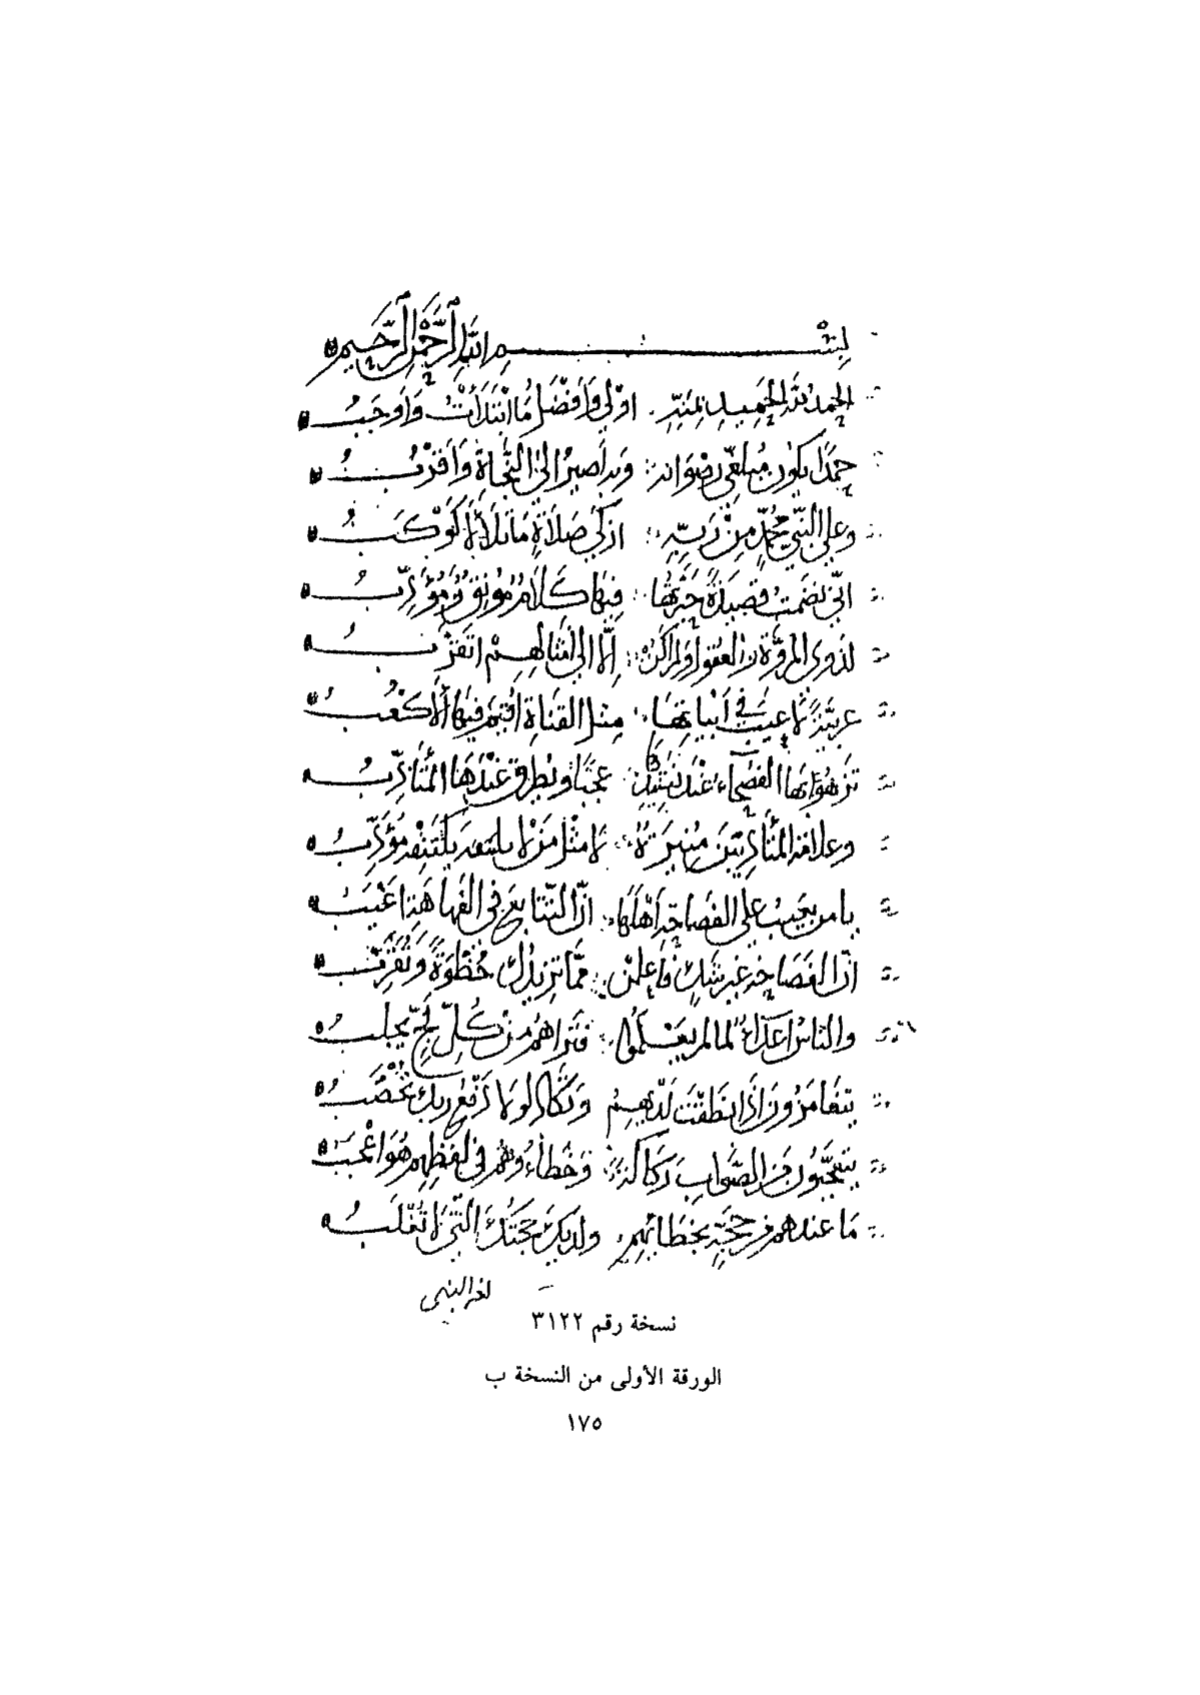 بِسْمِ اللَّهِ الرَّحْمٰنِ الرَّحِيمِ
الحمدُ للهِ الحَمِيدِ بِمَنِّهِ أَوْلَى وَأَفْضَلُ مَا ابْتَدَأْتُ وَأَوجَبُ
حَمْدًا يكونُ مُبلغِي رِضْوَانه وَبه أَصيرُ إلى النَّجَاةِ وَأَقرْبُ
وعلى النَّبِيِّ مُحَمَّدٍ مِنْ رَبِّهِ أزكَى صَلَاةٍ مَا تَلَأْلَأَ كَوْكَبُ
إنّي نَظَمتُ قصيدَةً حَبَّرْتُهَا فِيهَا كَلَامٌ مُونِقٌ وَمُؤَدِّبُ
لذوي المروَّةِ والعقولِ ولم أكنْ إلّا إلى أمْثَالِهِمْ أتَقَرَّبُ
عربيَّةً لا عيبَ في أَبْيَاتِهَا مِثل القَنَاةِ أُقِيمَ فيها الأَكْعُبُ
تزهو بها الفصحاءُ عندَ نشيدِهَا عجبًا ويُطرِقُ عنْدَهَا المتأَدِّبُ
وعلامة المتأَدِّبِينَ مُنِيرَةٌ لا مثْل مَنْ لا
يا من يعيبُ على الفصاحةِ أَهْلَهَا إنَّ التتابعَ في الفَهاهَةِ أَعْيَبُ
إنَّ الفَصَاحةَ غيرَ شَكٍّ فاعلمنْ ممَّا تزيدُكَ حُظْوَةً وَتُقَرِّبُ
والناسُ أعدَاءٌ لما لم يَعْلَمُوا فتَرَاهُمُ مِنْ كُلِّ فَجٍّ يجلبُ
يتغَامَزُونَ إذَا نطَقْتَ لَدَيْهِمُ وتكادُ لولا دَفْعُ رَبِّكَ تُحْصَبُ
يتعجَّبُونَ منَ الصَّوابِ وخَطَاءُهُمْ في لَفظِهِمْ هُوَ أعْجَبُ
مَا عندهم من حُجَّةٍ بخَطَائِهِمْ ولديكَ حجَتُكَ الَّتي لَا تُغْلَبُ
نسخة رقم ٣١٢٢
الورقة الأولى من النسخة ب
١٧٥